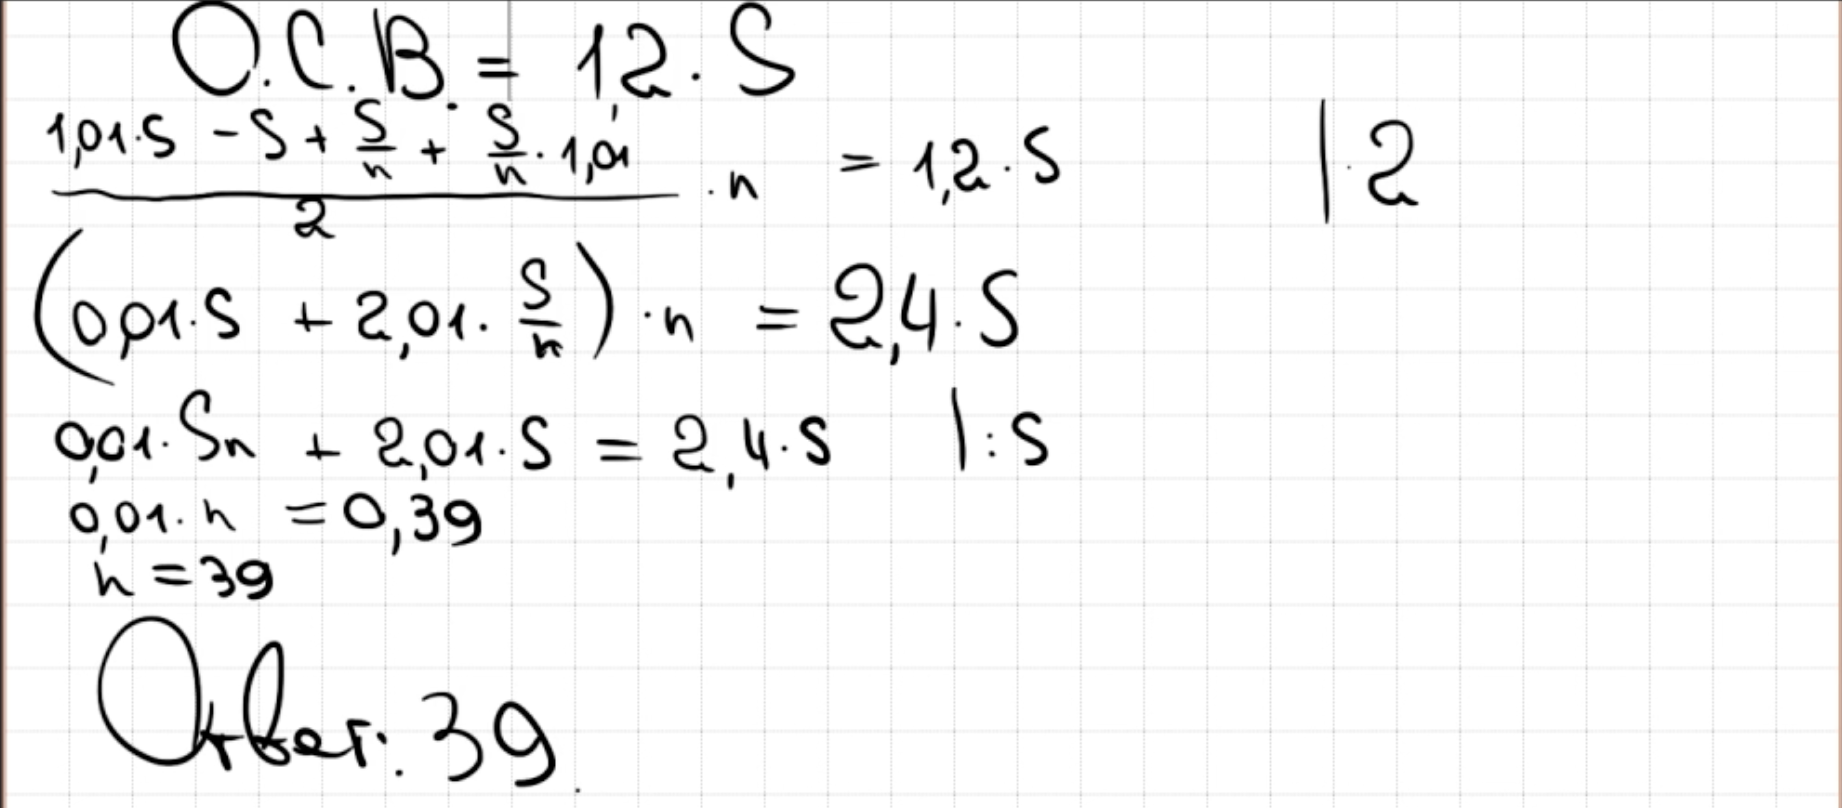 О.С.В. = 1,2 · S
(1,01·S - S + S/n + S/n · 1,01)/2 · n = 1,2 · S |·2
(0,01·S + 2,01 · S/n) · n = 2,4 · S
0,01 · Sn + 2,01 · S = 2,4 · S |:S
0,01 · n = 0,39
n = 39
Ответ: 39.